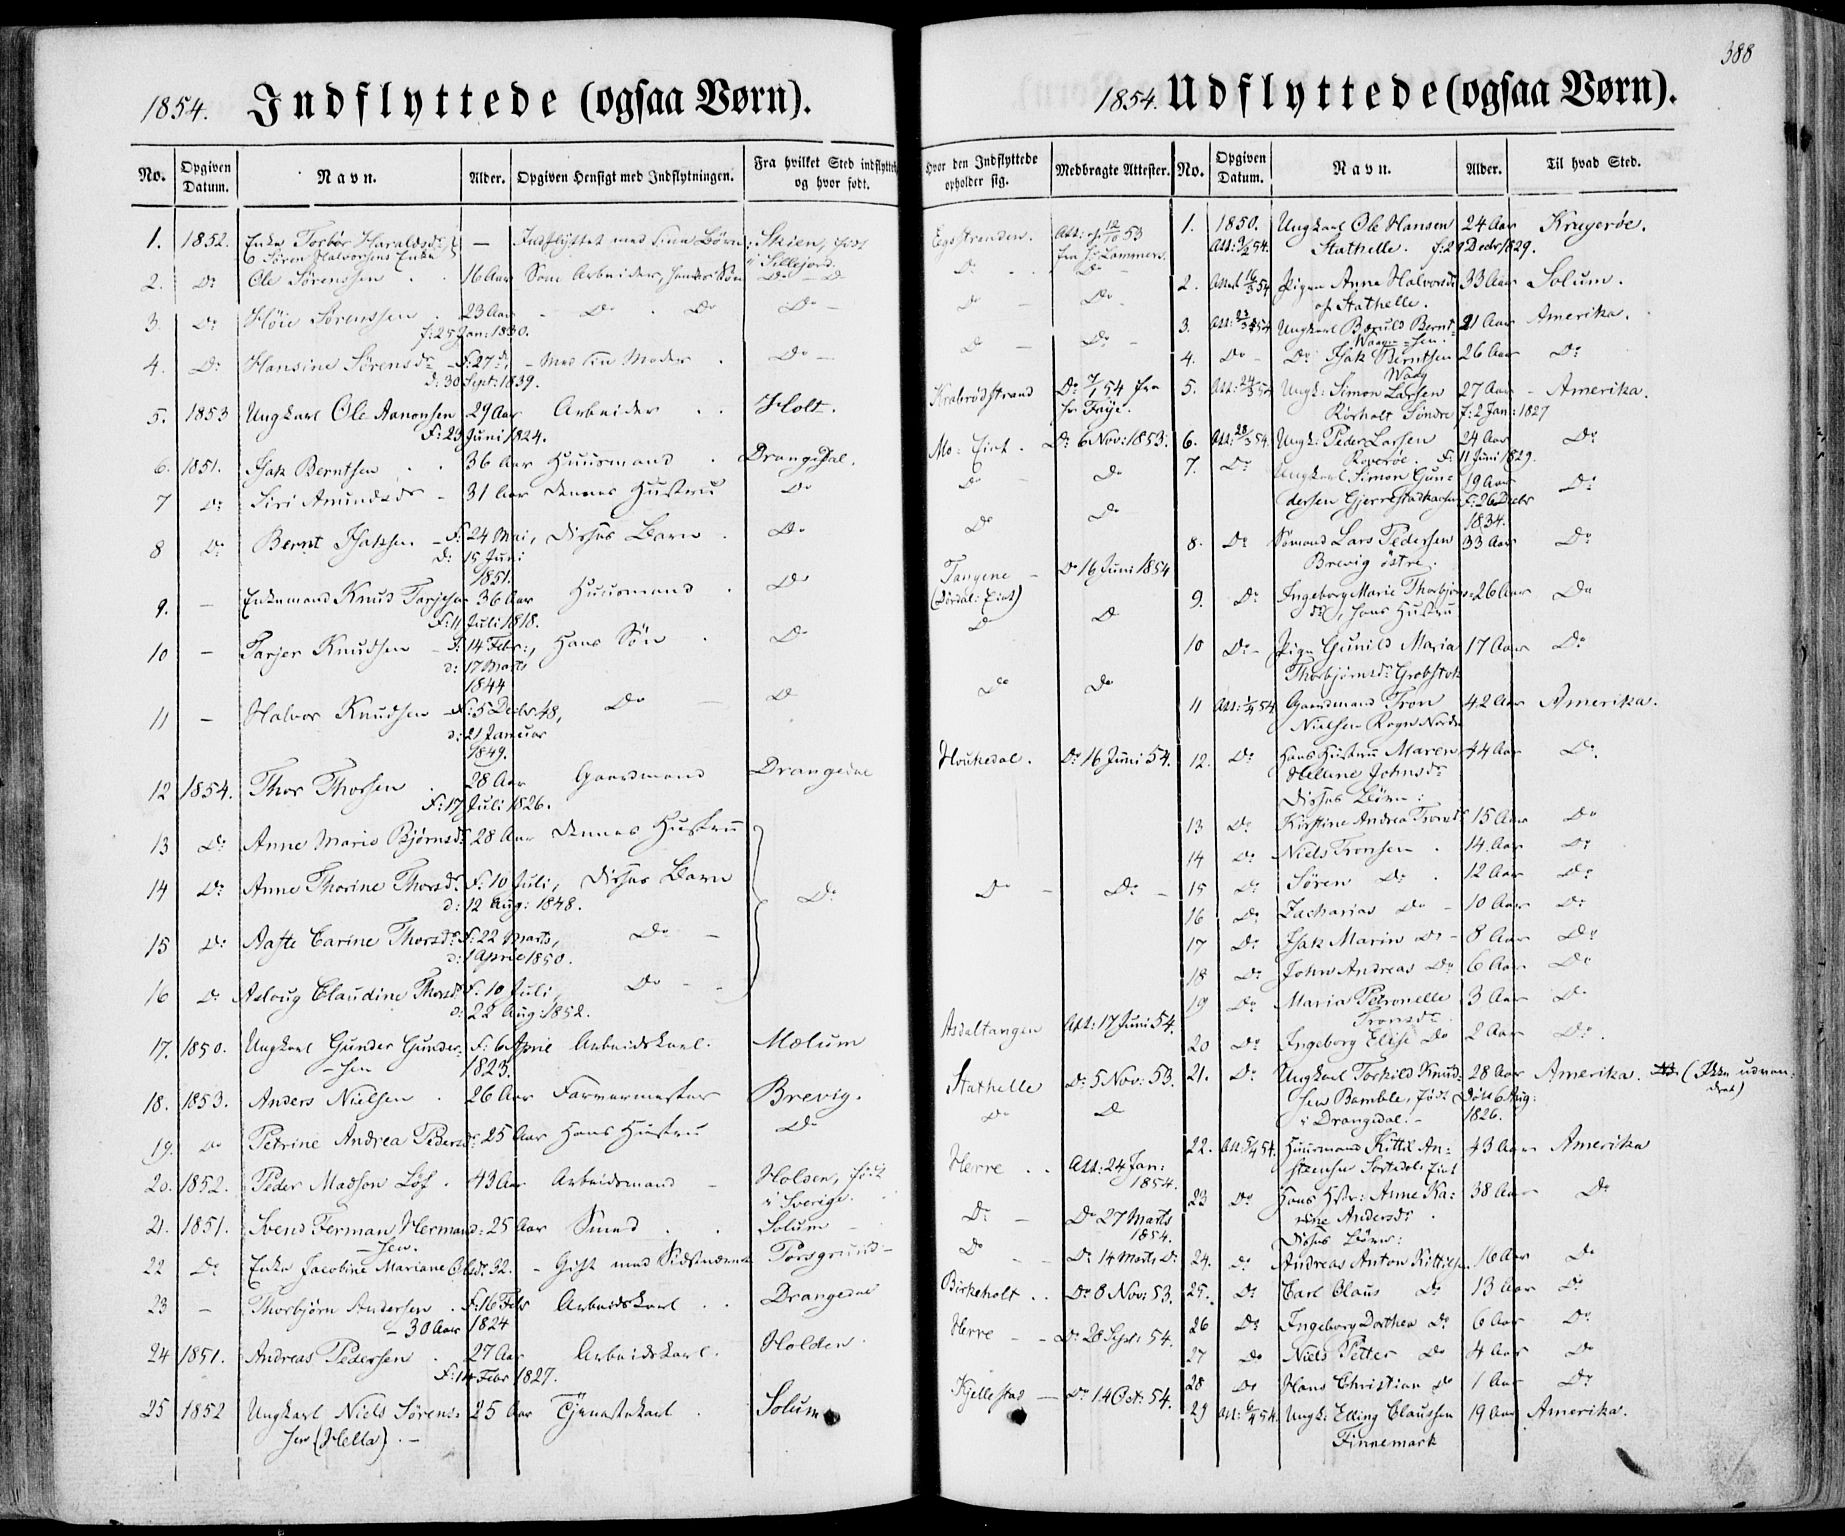 388
1854. Indflyttede (ogsaa Børn).
No. Opgiven Datum. Navn. Alder. Opgiven Hensigt med Indflytningen. Fra hvilket Sted indflyttet og hvor født. Hvor den Indflyttede opholder sig. Medbragte Attester.
1. 1852. Enke Torbør Haraldsdr — Indflyttet med sine Børn; Skien, født Egsstranden. Att: af 12/10 53
Søren Halvorsens Enke i Sillejord. fra Hr Lammers.
2. Do Ole Sørenssen 16 Aar Som Arbeider, hendes Søn Do — D Do Do
3. Do Höie Sørenssen 23 Aar Do Do Do Do Do
f: 25 Jan: 1830.
4. Do Hansine Sørensdr F: 27 d: Med sin Moder Do Do Do
d: 30 Sept: 1839.
5. 1853 Ungkarl Ole Aanonsen 29 Aar Arbeider Holt. Krabrødstrand Do 7/1 54 fra
F: 23 Juni 1824. Hr. Frye.
6. 1851. Isak Berntsen 36 Aar Huusmand Drangedal. Mo: Eiet. Do 6 Nov: 1853.
7 Do Siri Amundsdr 31 Aar dennes Hustru Do Do Do
8 Do Bernt Isaksen F: 24 Mai, Disses Barn Do Do Do
d: 15 Juni
1851.
9. — Enkemand Knud Tarjesen 36 Aar Huusmand Do Tangene Do 16 Juni 1854
F: 11 Juli 1818. (Dørdal: Eiet)
10 — Tarjer Knudsen F: 14 Febr:, Hans Søn Do D D
d: 17 Marts
1844
11 — Halvor Knudsen F: 5 Decbr 48, Do D Do Do
d: 21 Januar
1849.
12 1854. Thor Thorsen 28 Aar Gaardmand Drangedal Houkedal. Do 16 Juni 54.
F: 17 Juli 1826.
13 Do Anne Marie Bjørnsdr 28 Aar dennes Hustru
14 Do Anne Thorine Thorsdr F: 10 Juli, Disses Barn Do Do Do
d: 12 Aug: 1848.
15 Do Aaste Carine Thorsdr F: 22 Marts, Do
d: 1 April 1850.
16 Do Asloug Claudine Thorsdr F: 10 Juli, Do
d: 22 Aug: 1852.
17. 1850. Ungkarl Gunder Gunder- F: 6 April Arbeidskarl. Mælum Asdaltangen Att: 17 Juni 54.
sen 1823.
18. 1853. Anders Nielsen 26 Aar Farvermester Brevig. Stathelle Do 5 Nov: 53.
19. Do Petrine Andrea Pedersdr 25 Aar Hans Hustru Do Do D
20. 1852. Peder Madsen Löf 43 Aar Arbeidsmand Holden, født Herre Att: 24 Jan:
i Sverige. 1854.
21. 1851. Svend Ferman Herman- 25 Aar Smed Solum Do Do 27 Marts
sen. 1854.
22 Do Enke Jacobine Mariane Olsdr 32. Gift med Sidstnævnte Porsgrund Do Do 14 Marts Do
23 — Thorbjörn Andersen F: 16 Febr Arbeidskarl Drangedal Birkeholt Do 8 Nov: 53.
30 Aar 1824
24 1851. Andreas Pedersen 27 Aar Arbeidskarl. Holden Herre Do 28 Sept: 54.
F: 14 Febr 1827.
25 1852 Ungkarl Niels Sørens- 25 Aar Tjenestekarl Solum Kjellestad Do 14 Oct: 54.
sen (Hella).
1854. Udflyttede (ogsaa Børn).
No. Opgiven Datum. Navn. Alder. Til hvad Sted.
1. 1850. Ungkarl Ole Hansen 24 Aar Kragerøe.
Att: 9/2 54. Stathelle. f: 29 Decbr 1829.
2. Attest 16/3 54 Pigen Anne Halvorsdr 33 Aar Solum.
af Stathelle.
3. Att: 23/3 54 Ungkarl Børuld Bernt- 21 Aar Amerika.
Waag sen
4. Do Do Isak Berntsen 26 Aar Do
Waag
5. Att: 24/3 54 Ungk: Simon Larsen 27 Aar Amerika.
Rörholt Söndre f: 2 Jan: 1827
6. Att: 28/3 54. Ungk: Peder Larsen 24 Aar Do
F: 11 Juni 1829.
7. Do Ungkarl Simon Gun- 19 Aar Do
dersen F: 26 Decbr
1834.
8. Do Sömand Lars Pedersen 33 Aar Do
Brevig østre.
9. Do Ingeborg Marie Thorbjørns- 26 Aar Do
dr, hans Hustru
10 Do Pige Gunild Maria 17 Aar Do
Thorbjørnsdr Grobstok
11 Att: 1/4 54 Gaardmand Tron 42 Aar Amerika.
Nielsen Rogn Nordre
12. Do Hans Hustru Maren 44 Aar Do.
Helene Johnsdr
Disses Børn:
13 Do Kirstine Andrea Tronsdr 15 Aar Do
14 Do Niels Tronsen 14 Aar Do
15 Do Sören Do 12 Aar Do
16 Do Zacharias Do 10 Aar Do
17 Do Isak Marin Do 8 Aar Do
18 Do John Andreas Do 6 Aar Do
19 Do Maria Petronelle 3 Aar Do
Tronsdr
20 Do Ingeborg Elise Do 2 Aar Do
21. Do Ungkarl Torkild Knud- 28 Aar Amerika. (Ikke udvan-
sen Bamble, født Döbt 6 Aug: dret)
i Drangedal. 1826.
22. Att: 5/4 54. Huusmand Kittil An- 43 Aar Amerika
stensen Sortedal: Eiet
23 Do Hans Hstr: Anne Ka- 38 Aar Do
rine Andersdr
Disses Børn:
24. Do Andreas Anton Kittilsen 16 Aar Do
25. Do Carl Claus Do 13 Aar Do
26 Do Ingeborg Dorthea Do 6 Aar Do
27 Do Niels Petter Do 4 Aar Do
28 Do Hans Christian Do 1 Aar Do
29 Att: 6/4 54. Ungk: Elling Claussen 19 Aar Amerika.
Finnemark